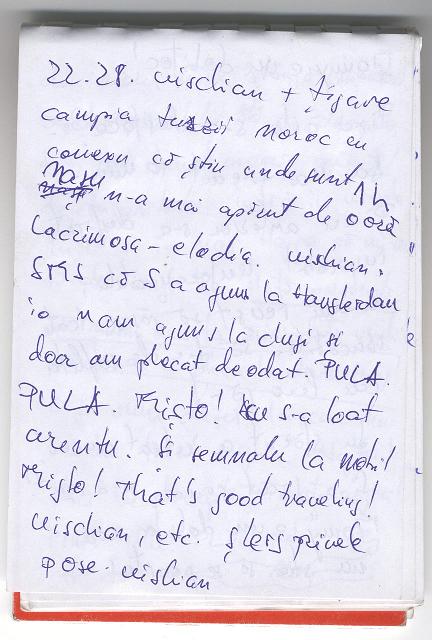 22.28. nischian + țigare
campia turzii noroc cu
conexu că știu unde sunt
Nașu 1h
n-a mai apărut de o oră
Lacrimosa - elodia. nischian.
SMS că S a ajuns la Hamsterdam
io nam ajuns la cluj și
doar am plecat deodat. PULA.
PULA. Fristo! s-a loat
curentu. Și semnalu la mobil
Fristo! That's good traveling!
nischian, etc. șters privele
pose. nischian